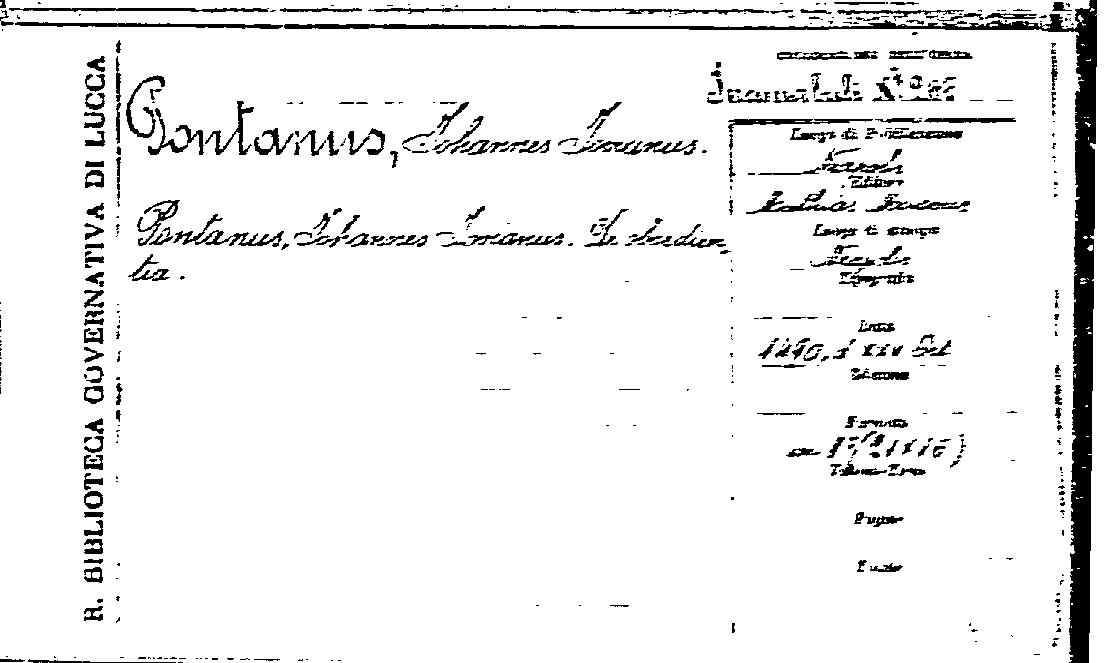 R. BIBLIOTECA GOVERNATIVA DI LUCCA
Pontanus, Johannes Jovianus.
Pontanus, Johannes Jovianus. De obedien
tia.
Incunabuli N°
Luogo di Pubblicazione
Napoli
Editore
Luogo di stampa
Napoli
Tipografo
Data
1490, XXV Oct
Edizione
Formato
Volume-Tomo
Pagine